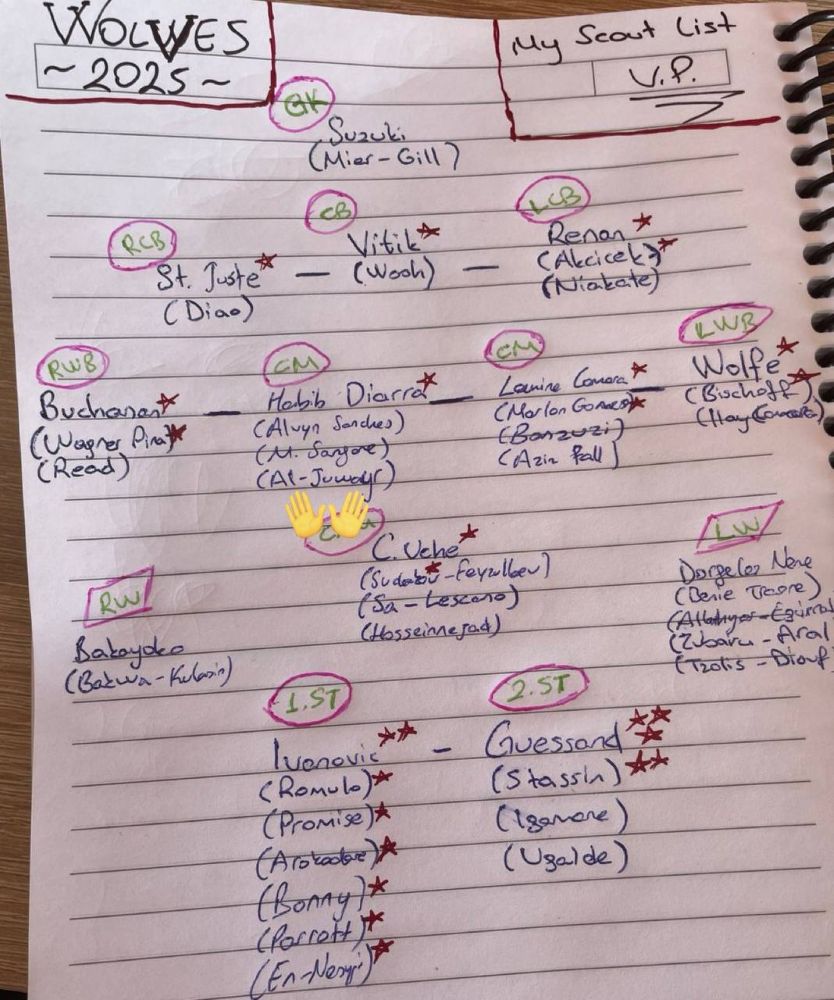 WOLWES
~ 2025 ~
My Scout List
V.P.
GK
Suzuki
(Mier - Gill)
RCB
CB
LCB
St. Juste — Vitik — Renan
(Diao) (Wooh) (Akcicek)
(Niakate)
RWB
CM
CM
LWB
Buchanan — Habib Diarra — Lamine Camara — Wolfe
(Wagner Pina) (Alvyn Sanches) (Marlon Gomes) (Bischoff)
(Read) (M. Sangare) (Banzuzi) (Hay Camara)
(Al-Juwayr) (Aziz Fall)
RW
LW
C. Uche
(Sudakov - Feyzullaev)
(Sa - Lezcano)
(Hosseinnejad)
Dorgeles Nene
(Benie Traore)
(Zubaru - Aral
(Tzolis - Diouf
Bakayoko
(Bakwa - )
1.ST
2.ST
Ivanovic — Guessand
(Romulo) (Stassin)
(Promise) (Igamane)
(Arokodare) (Ugalde)
(Bonny)
(Parrott)
(En-Nesyri)